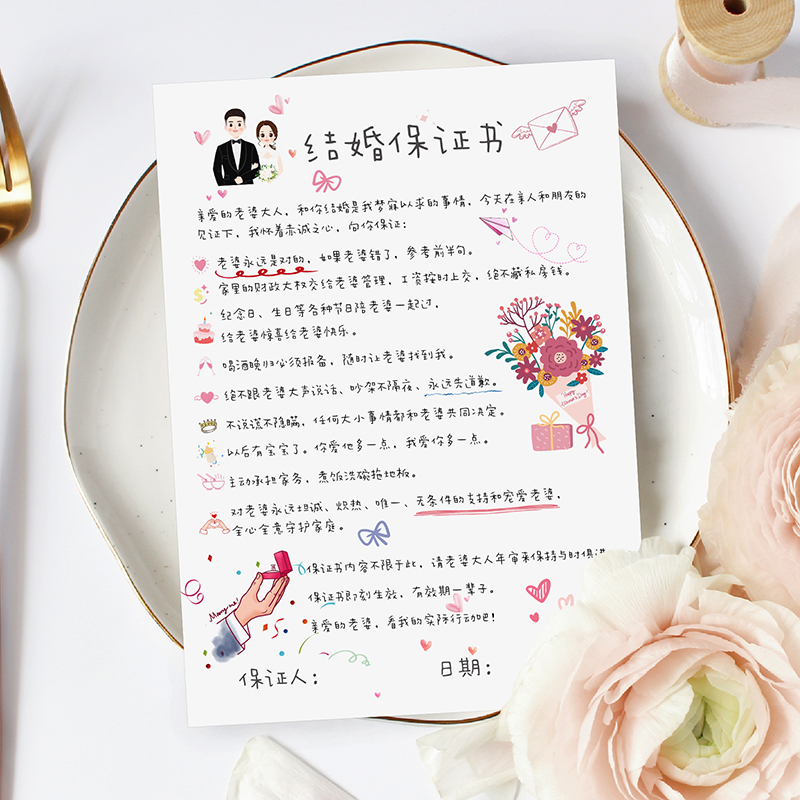 结婚保证书
亲爱的老婆大人，和你结婚是我梦寐以求的事情，今天在亲人和朋友的
见证下，我怀着赤诚之心，向你保证：
老婆永远是对的，如果老婆错了，参考前半句。
家里的财政大权交给老婆管理，工资按时上交，绝不藏私房钱。
纪念日、生日等各种节日陪老婆一起过，
给老婆惊喜给老婆快乐。
喝酒晚归必须报备，随时让老婆找到我。
绝不跟老婆大声说话、吵架不隔夜、永远先道歉。
不说谎不隐瞒，任何大小事情都和老婆共同决定。
以后有宝宝了。你爱他多一点，我爱你多一点。
主动承担家务，煮饭洗碗拖地板。
对老婆永远坦诚、炽热、唯一、无条件的支持和宠爱老婆，
全心全意守护家庭。
保证书内容不限于此，请老婆大人年审来保持与时俱进
保证书即刻生效，有效期一辈子。
亲爱的老婆，看我的实际行动吧！
Marry me
保证人：
日期：